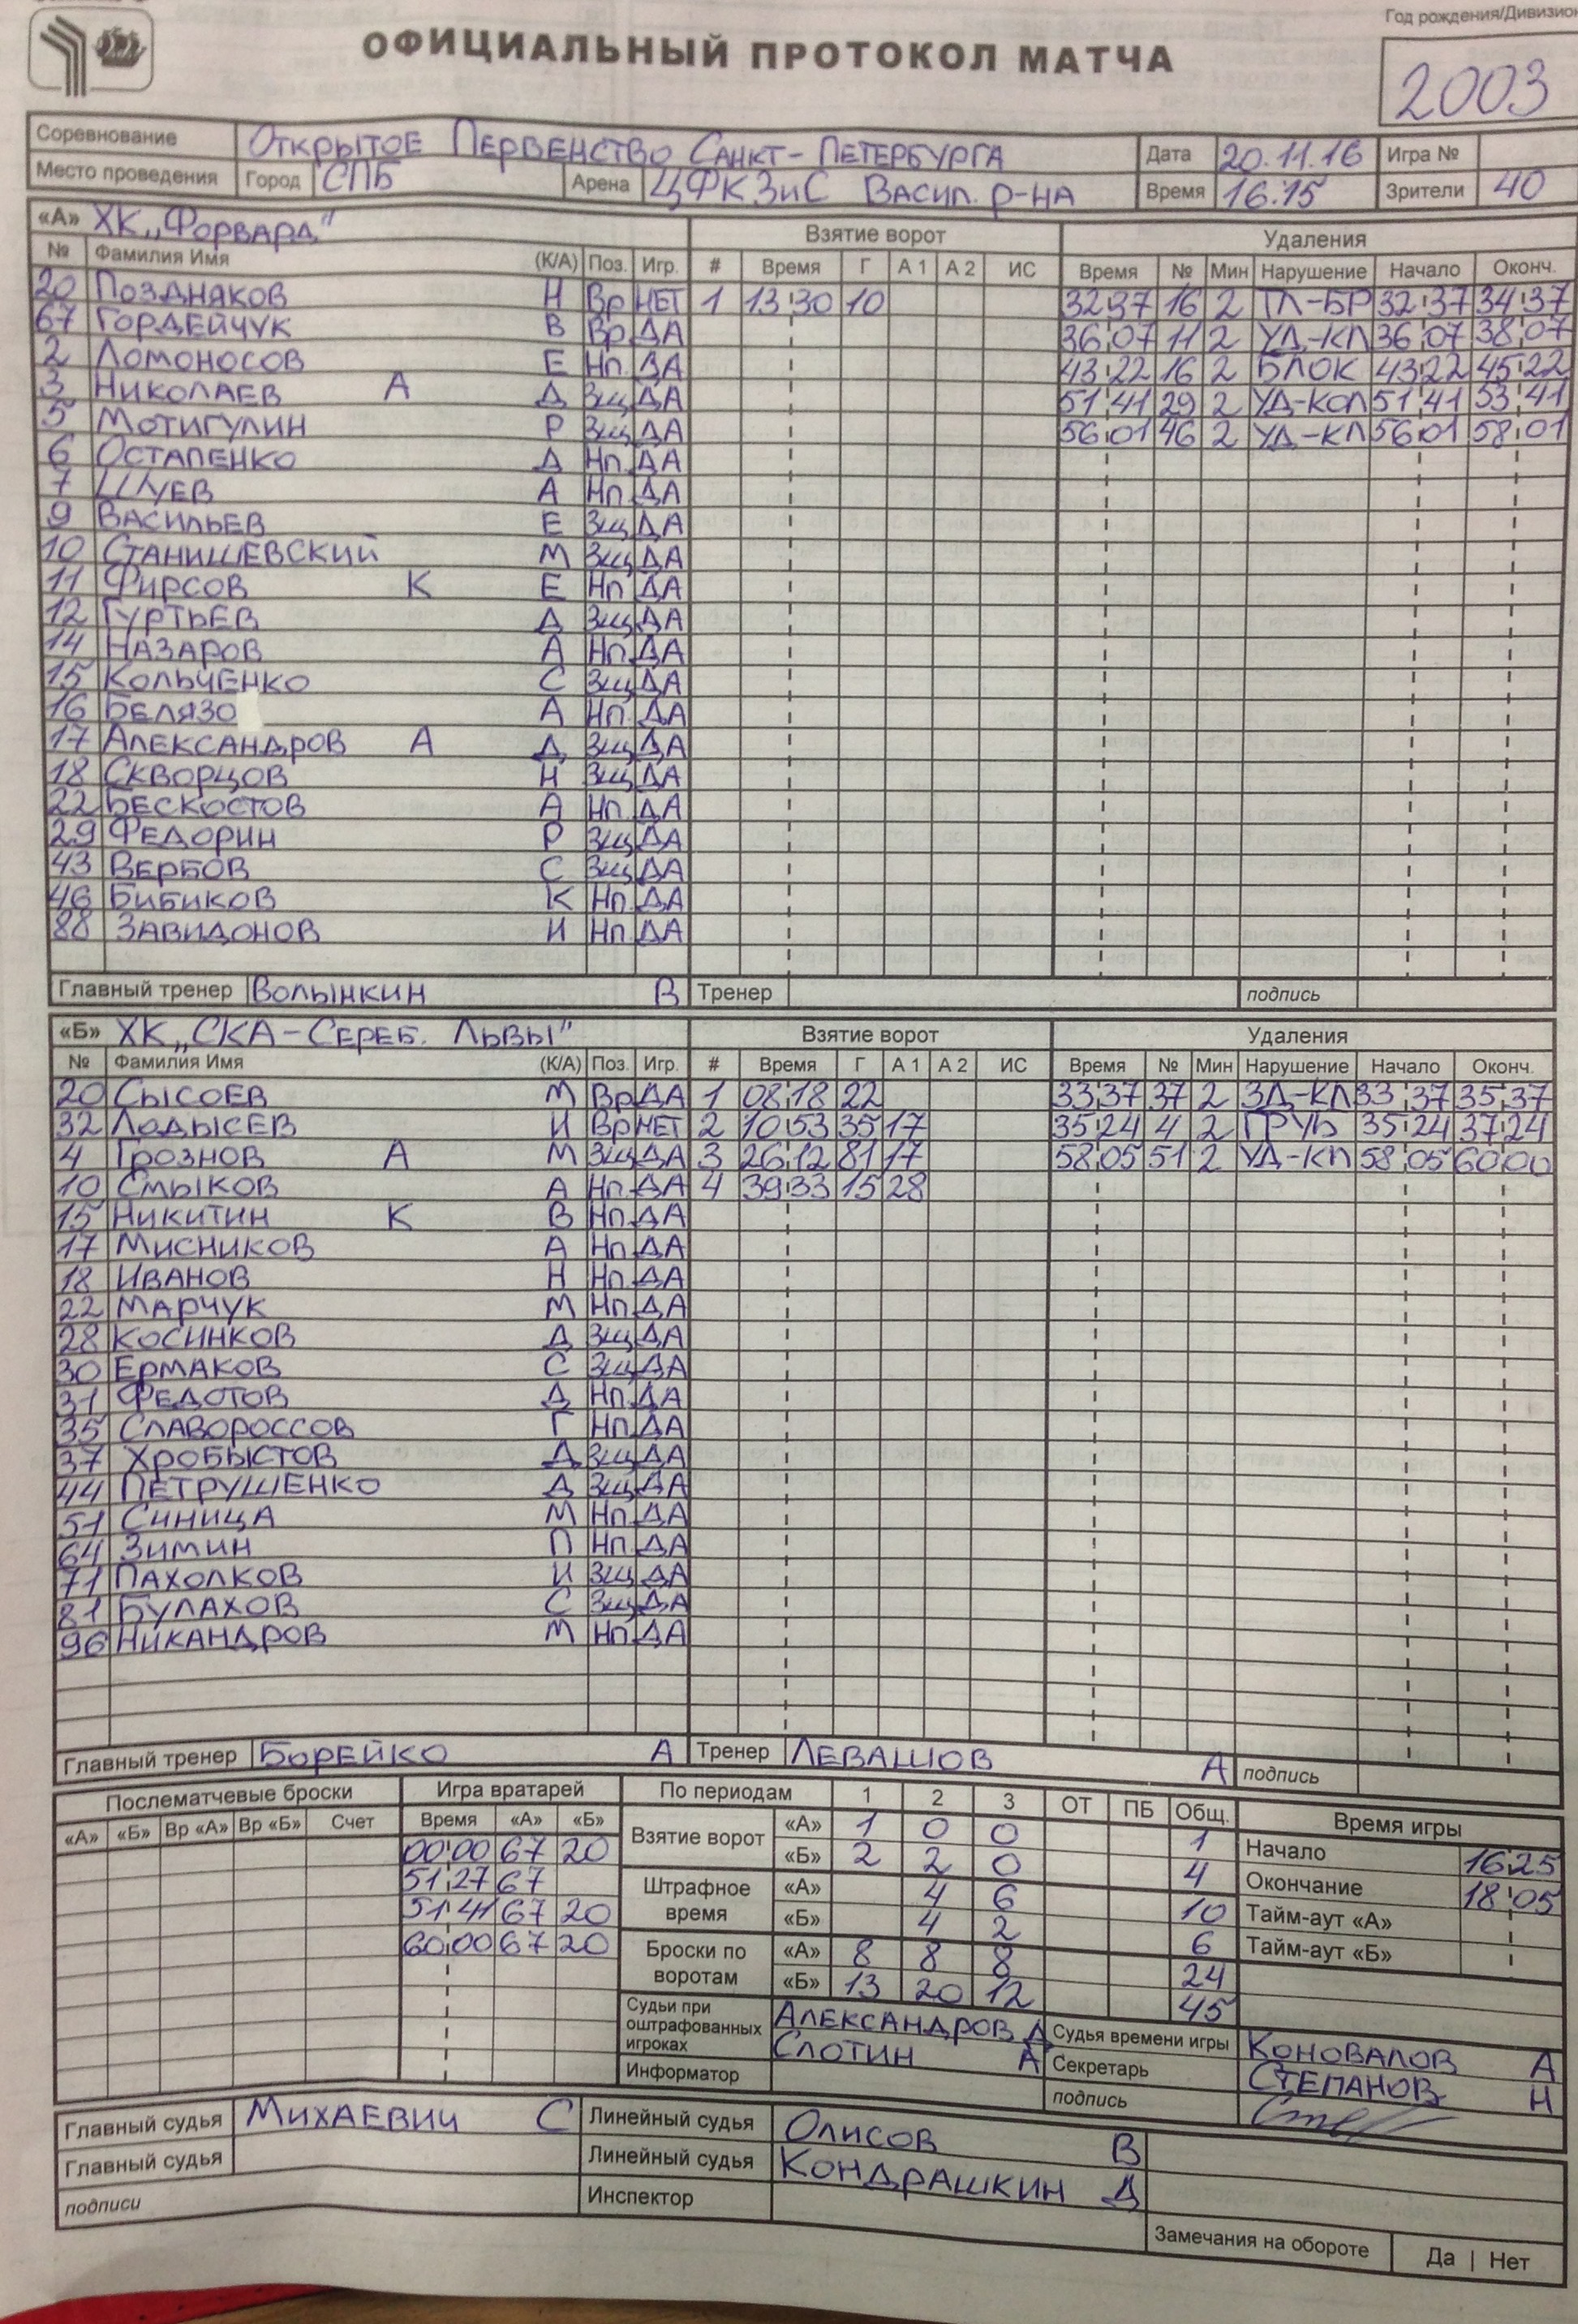 Год рождения/Дивизион
ОФИЦИАЛЬНЫЙ ПРОТОКОЛ МАТЧА
2003
Соревнование Открытое Первенство Санкт-Петербурга Дата 20.11.16 Игра №
Место проведения Город СПб Арена ЦФКЗиС Васил. р-на Время 16:15 Зрители 40
«А» ХК „Форвард" Взятие ворот Удаления
№ Фамилия Имя (К/А) Поз. Игр. # Время Г А 1 А 2 ИС Время № Мин Нарушение Начало Оконч.
20 Поздняков Н Вр НЕТ 1 13:30 10 32:37 16 2 ТЛ-БР 32:37 34:37
67 Гордейчук В Вр. ДА 36:07 11 2 УД-КЛ 36:07 38:07
2 Ломоносов Е Нп. ДА 43:22 16 2 БЛОК 43:22 45:22
3 Николаев А Д Зщ ДА 51:41 29 2 УД-КОЛ 51:41 53:41
5 Мотигулин Р Зщ ДА 56:01 46 2 УД-КЛ 56:01 58:01
6 Остапенко Д Нп. ДА
7 Шуев А Нп. ДА
9 Васильев Е Зщ ДА
10 Станишевский М Зщ ДА
11 Фирсов К Е Нп ДА
12 Гуртьев Д Зщ ДА
14 Назаров А Нп. ДА
15 Кольченко С Зщ ДА
16 Белязо А Нп. ДА
17 Александров А Д Зщ ДА
18 Скворцов Н Зщ ДА
22 Бескостов А Нп. ДА
29 Федорин Р Зщ ДА
43 Вербов С Зщ ДА
46 Бибиков К Нп. ДА
88 Завидонов И Нп. ДА
Главный тренер Волынкин В Тренер подпись
«Б» ХК „СКА-Сереб. Львы" Взятие ворот Удаления
№ Фамилия Имя (К/А) Поз. Игр. # Время Г А 1 А 2 ИС Время № Мин Нарушение Начало Оконч.
20 Сысоев М Вр ДА 1 08:18 22 33:37 37 2 ЗД-КЛ 33:37 35:37
32 Ладысев И Вр НЕТ 2 10:53 35 17 35:24 4 2 ГРУБ 35:24 37:24
4 Грознов А М Зщ ДА 3 26:12 81 17 58:05 51 2 УД-КЛ 58:05 60:00
10 Смыков А Нп. ДА 4 39:33 15 28
15 Никитин К В Нп. ДА
17 Мисников А Нп. ДА
18 Иванов Н Нп. ДА
22 Марчук М Нп. ДА
28 Косинков Д Зщ ДА
30 Ермаков С Зщ ДА
31 Федотов Д Нп. ДА
35 Славороссов Г Нп. ДА
37 Хробыстов Д Зщ ДА
44 Петрушенко Д Зщ ДА
51 Синица М Нп. ДА
64 Зимин П Нп. ДА
71 Пахолков И Зщ ДА
81 Булахов С Зщ ДА
96 Никандров М Нп. ДА
Главный тренер Борейко А Тренер Левашов А подпись
Послематчевые броски Игра вратарей По периодам 1 2 3 ОТ ПБ Общ. Время игры
«А» «Б» Вр «А» Вр «Б» Счет Время «А» «Б»
Взятие ворот «А» 1 0 0 1 Начало 16:25
00:00 67 20 «Б» 2 2 0 4 Окончание 18:05
51:27 67 Штрафное время «А» 4 6 10 Тайм-аут «А»
51:41 67 20 «Б» 4 2 6 Тайм-аут «Б»
60:00 67 20 Броски по воротам «А» 8 8 8 24
«Б» 13 20 12 45
Судьи при оштрафованных игроках Александров Д Судья времени игры Коновалов А
Слотин А Секретарь Степанов Н
Информатор подпись
Главный судья Михаевич С Линейный судья Олисов В
Главный судья Линейный судья Кондрашкин Д
подписи Инспектор
Замечания на обороте Да | Нет